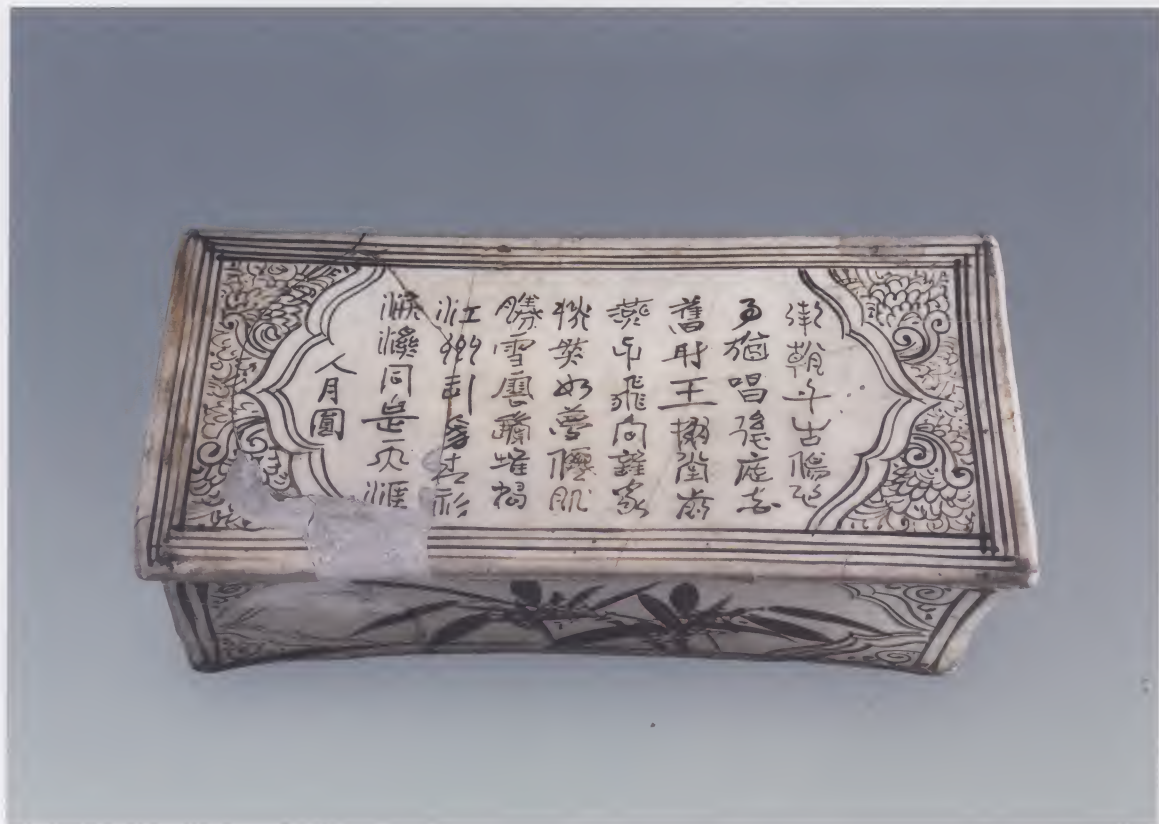 朝千古傷心
事猶唱後庭花
舊时王謝堂前
燕子飛向誰家
恍然如夢僊肌
勝雪雲鬢堆鴉
江州司馬青衫
淚濕同是天涯
人月圓